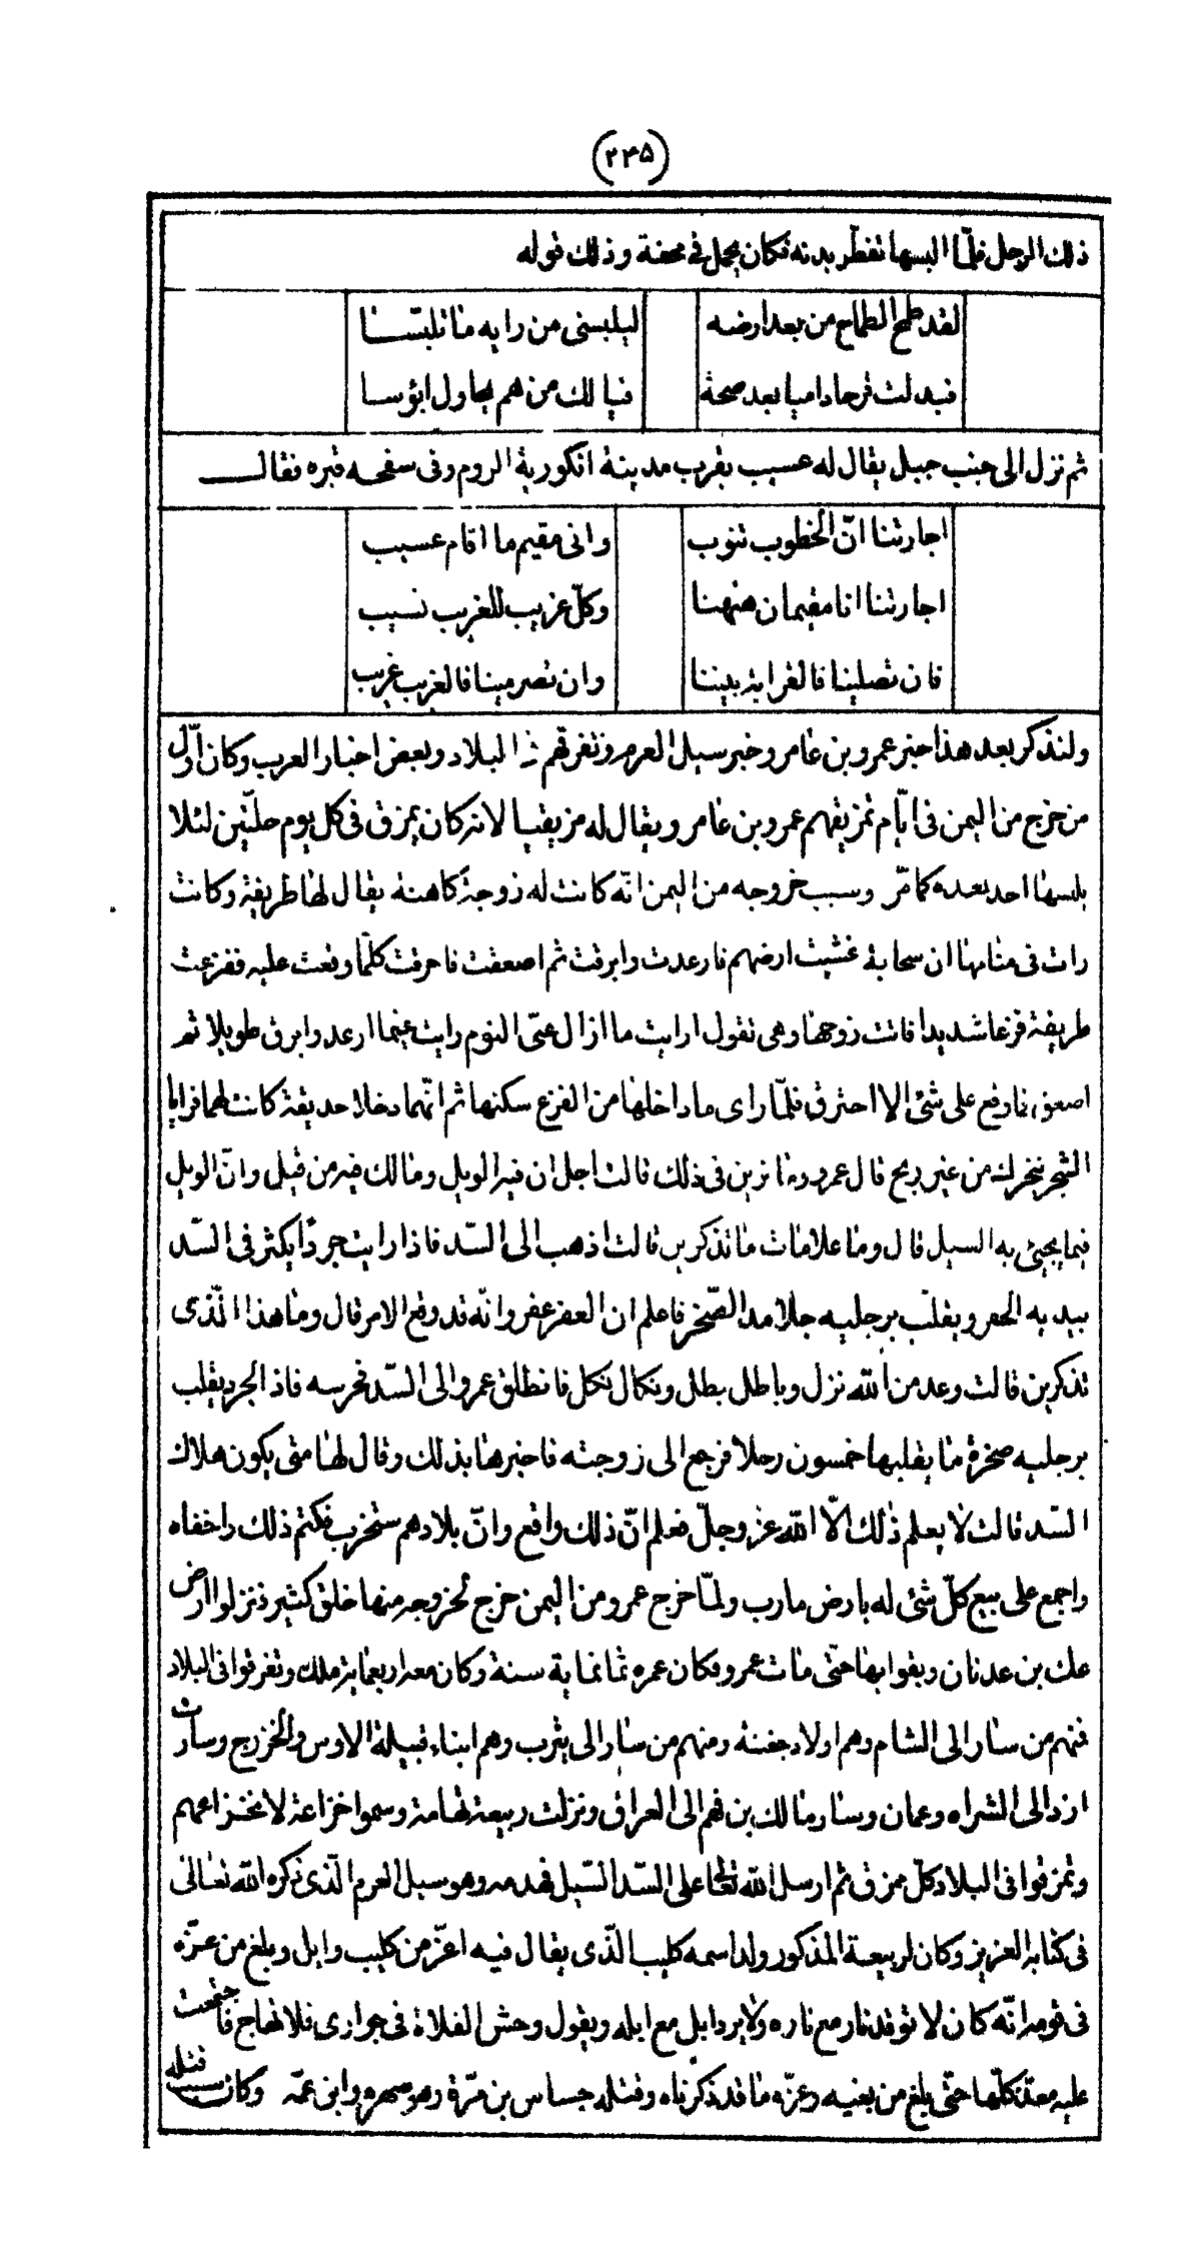 (۲۳۵)
ذلك الرجل فلمّا البسها تفطّر بدنه فكان يحمل فى محفة وذلك قوله
لقد طمح الطماح من بعد ارضه ليلبسنى من رايه ما تلبّسا
فبدلت قرحا داميا بعد صحة فيا لك من هم يحاول ابؤسا
ثم نزل الى جنب جبل يقال له عسيب بقرب مدينة انكورية الروم وفى سفحه قبره فقال
اجارتنا انّ الخطوب تنوب وانى مقيم ما اقام عسيب
اجارتنا انا مقيمان ههنا وكلّ غريب للغريب نسيب
فان تصلينا فالقرابة بيننا وان تصرمينا فالغريب غريب
ولنذكر بعد هذا خبر عمرو بن عامر وخبر سيل العرم وتفرقهم فى البلاد وبعض اخبار العرب وكان اوّل
من خرج من اليمن فى ايّام تمزيقهم عمرو بن عامر ويقال له مزيقيا لانه كان يمزق فى كل يوم حلّتين لئلا
يلبسها احد بعده كما مرّ وسبب خروجه من اليمن انّه كانت له زوجة كاهنة يقال لها طريفة وكانت
رات فى منامها ان سحابة غشيت ارضهم فارعدت وابرقت ثم اصعقت فاحرقت كلّما وقعت عليه ففزعت
طريفة فزعا شديدا فاتت زوجها وهى تقول ارايت ما ازال عنّى النوم رايت غيما ارعد وابرق طويلا ثم
اصعق فما وقع على شئ الا احترق فلمّا راى ما داخلها من الفزع سكنها ثم انّهما دخلا حديقة كانت لهما فرايا
الشجر يتحرك من غير ريح قال عمرو وما ترين فى ذلك قالت اجل ان فيه الويل ومالك فيه من قيل وانّ الويل
فيما يجيئ به السيل قال وما علامات ما تذكرين قالت اذهب الى السّد فاذا رايت جرذا يكثر فى السّد
بيديه الحفر ويقلّب برجليه جلامد الصّخر فاعلم ان العقر عقر وانّه قد وقع الامر قال وما هذا الّذى
تذكرين قالت وعد من الله نزل وباطل بطل ونكال نكل فانطلق عمرو الى السّد فحرسه فاذ الجرذ يقلب
برجليه صخرة ما يقلبها خمسون رجلا فرجع الى زوجته فاخبرها بذلك وقال لها متى يكون هلاك
السّد قالت لا يعلم ذلك الّا الله عز وجلّ فعلم انّ ذلك واقع وانّ بلادهم ستخرب فكتم ذلك واخفاه
واجمع على بيع كلّ شئ له بارض مارب ولمّا خرج عمرو من اليمن خرج لخروجه منها خلق كثير فنزلوا ارض
عك بن عدنان وبقوا بها حتّى مات عمرو فكان عمره ثمانماية سنة وكان معه اربعماية ملك وتفرقوا فى البلاد
فمنهم من سار الى الشام وهم اولاد جفنة ومنهم من سار الى يثرب وهم ابناء قبيلة الاوس والخزرج وسارت
ازد الى الشراه وعمان وسار مالك بن فهم الى العراق ونزلت ربيعة تهامة وسموا خزاعة لانخزاعهم
وتمزقوا فى البلاد كلّ ممزق ثم ارسل الله تعالى على السّد السّيل فهدمه وهو سيل العرم الّذى ذكره الله تعالى
فى كتابه العزيز وكان لربيعة المذكور ولد اسمه كليب الّذى يقال فيه اعزّ من كليب وايل وبلغ من عزّه
فى قومه انّه كان لا توقد نار مع ناره ولا يرد ابل مع ابله ويقول وحش الفلاة فى جوارى فلا تهاج فاجتمعت
عليه معد كلّها حتّى بلغ من بغيه وعزّه ما قد ذكرناه وقتله جساس بن مرّة وهو صهره وابن عمّه وكان سبب قتله